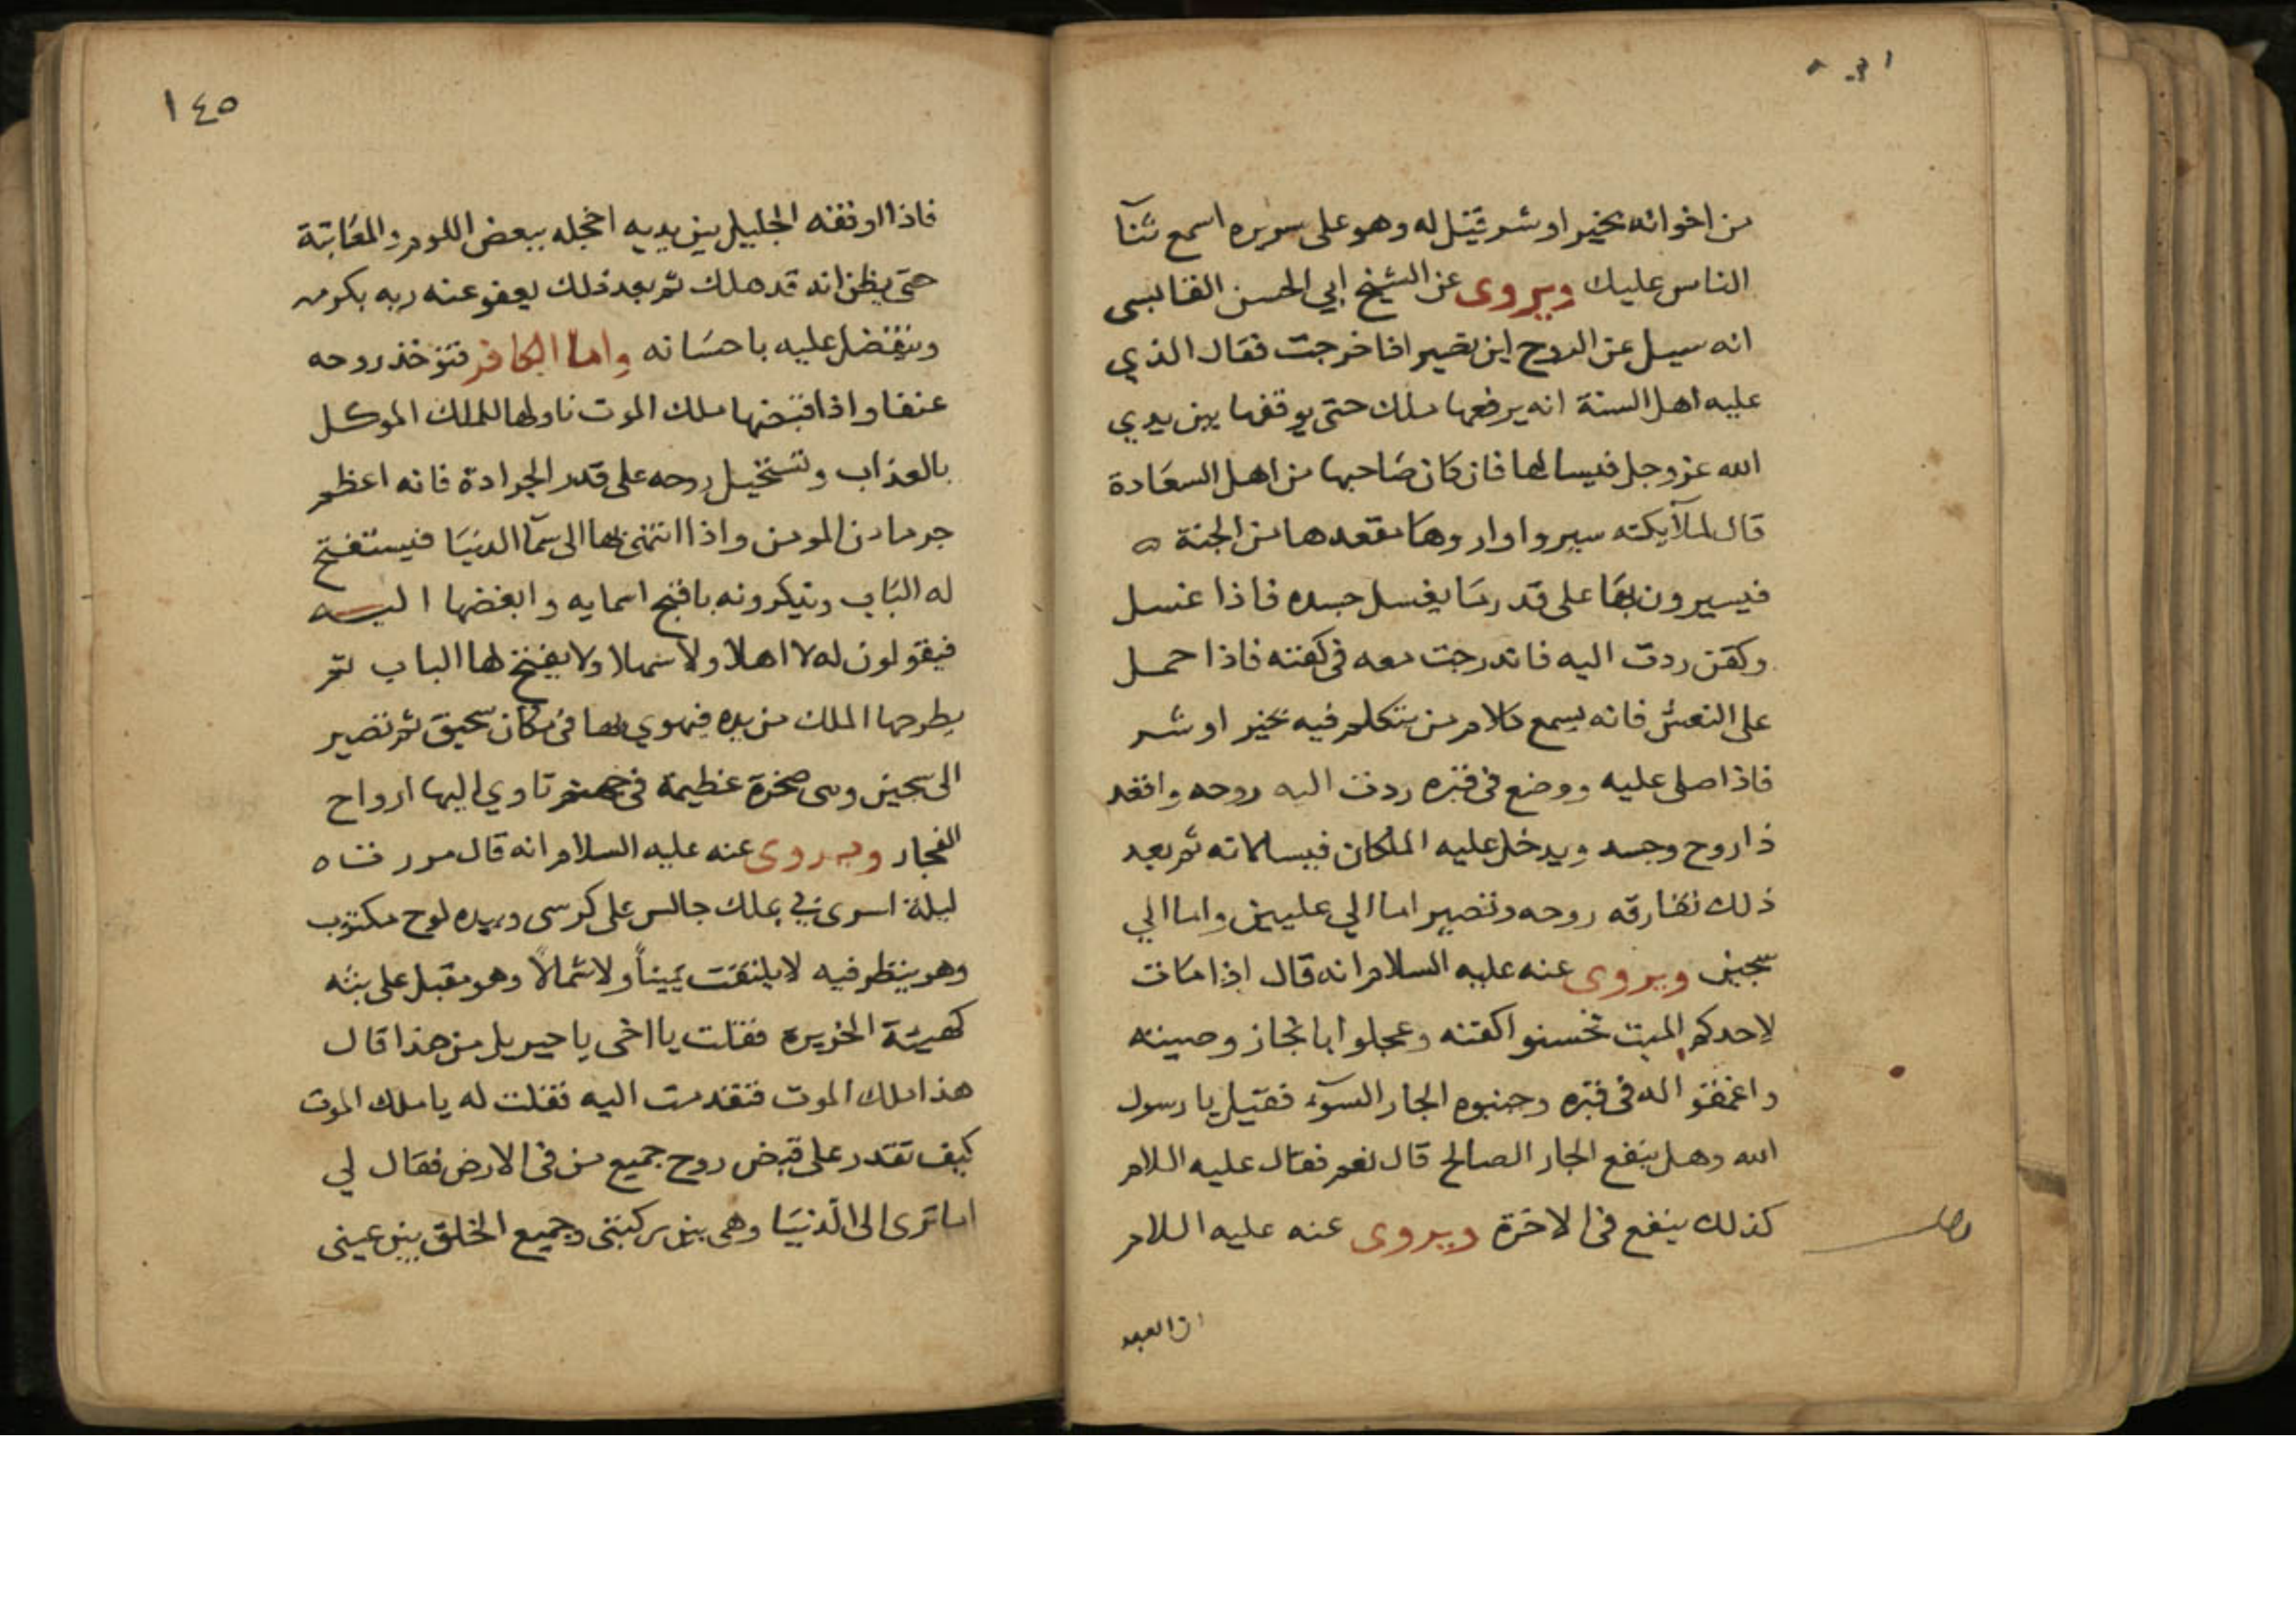 من اخوانه بخير او شر قيل له وهو على سريره اسمع ثنآ
الناس عليك ويروى عن الشيخ ابي الحسن القابسى
انه سيل عن الروح اين تصير اذا خرجت فقال الذي
عليه اهل السنة انه يرفعها ملك حتى يوقفها بين يدي
الله عز وجل فيسالها فان كان صاحبها من اهل السعادة
قال لملآيكته سيروا واروها مقعدها من الجنة ه
فيسيرون بها على قدر ما يغسل جسده فاذا غسل
وكفن ردت اليه فاندرجت معه فى كفنه فاذا حمل
على النعش فانه يسمع كلام من يتكلم فيه بخير او شر
فاذا صلى عليه ووضع فى قبره ردت اليه روحه واقعد
ذا روح وجسد ويدخل عليه الملكان فيسالانه ثم بعد
ذلك تفارقه روحه وتصير اما الي عليين واما الي
سجين ويروى عنه عليه السلام انه قال اذا مات
لاحدكم الميت فحسنوا كفنه وعجلوا بانجاز وصيته
واعمقوا له فى قبره وجنبوه الجار السوٓء فقيل يا رسول
الله وهل ينفع الجار الصالح قال نعم فقال عليه اللام
كذلك ينفع فى الاخرة ويروى عنه عليه اللام
ان العبد
١٤٥
فاذا اوقفه الجليل بين يديه اخجله ببعض اللوم والمعاتبة
حتى يظن انه قد هلك ثم بعد ذلك يعفو عنه ربه بكرمه
ويتفضل عليه باحسانه واما الكافر فتؤخذ روحه
عنفا واذا قبضها ملك الموت ناولها للملك الموكل
بالعذاب وتستخيل روحه على قدر الجرادة فانه اعظم
جرما من المومن واذا انتهى بها الى سمآ الدنيا فيستفتح
له الباب ويذكرونه باقبح اسمايه وابغضها اليه
فيقولون له لا اهلا ولا سهلا ولا يفتح لها الباب ثم
يطرحها الملك من يده فيهوي بها فى مكان سحيق ثم تصير
الى سجين وهى صخرة عظيمة فى جهنم تاوي اليها ارواح
الفجار ويروى عنه عليه السلام انه قال مررت ه
ليلة اسرى بي بملك جالس على كرسى وبيده لوح مكتوب
وهو ينظر فيه لا يلتفت يميناً ولا شمالاً وهو مقبل على
كهيئة فقلت يا اخى يا جبريل من هذا قال
هذا ملك الموت فتقدمت اليه فقلت له يا ملك الموت
كيف تقدر على قبض روح جميع من فى الارض فقال لي
اما ترى الى الدنيا وهى بين ركبتى وجميع الخلق بين عينى